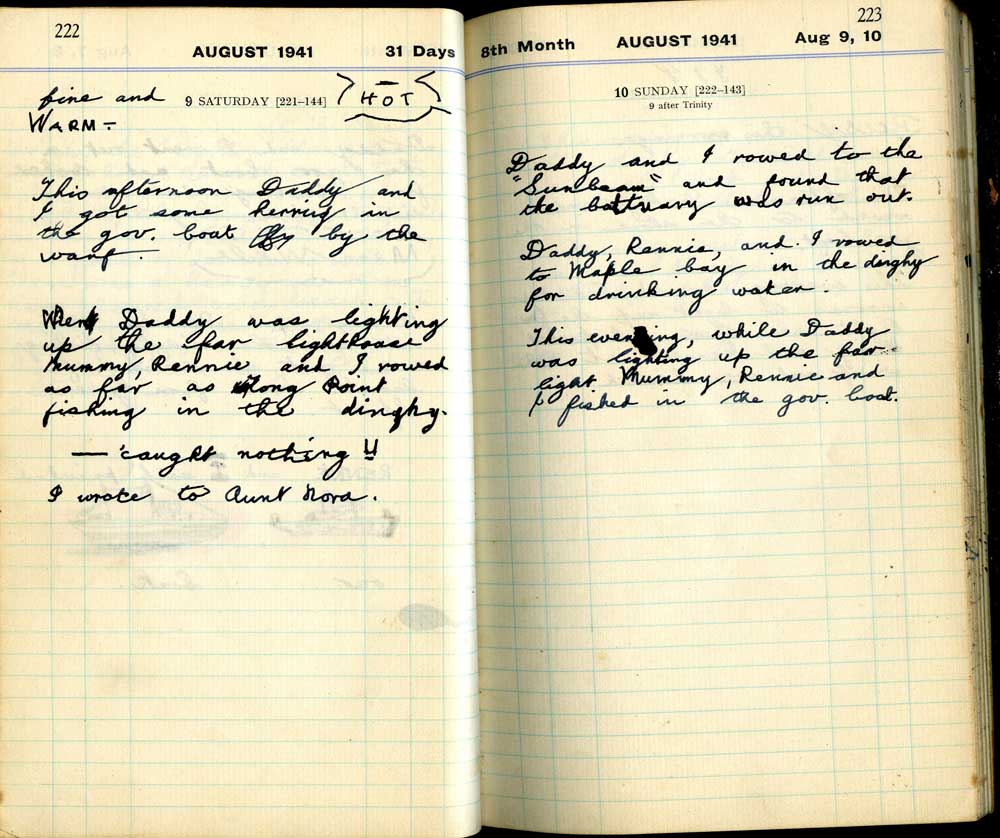 222
AUGUST 1941 31 Days
fine and
WARM —
9 SATURDAY [221–144]
HOT
This afternoon Daddy and
I got some herring in
the gov. boat by the
warf.
When Daddy was lighting
up the far lighthouse
Mummy, Rennie and I rowed
as far as Long Point
fishing in the dinghy.
— 'caught nothing !!
I wrote to Aunt Nora.
223
8th Month AUGUST 1941 Aug 9, 10
10 SUNDAY [222–143]
9 after Trinity
Daddy and I rowed to the
"Sunbeam" and found that
the battuary was run out.
Daddy, Rennie, and I rowed
to Maple bay in the dinghy
for drinking water.
This evening, while Daddy
was lighting up the far
light Mummy, Rennie and
I fished in the gov. boat.